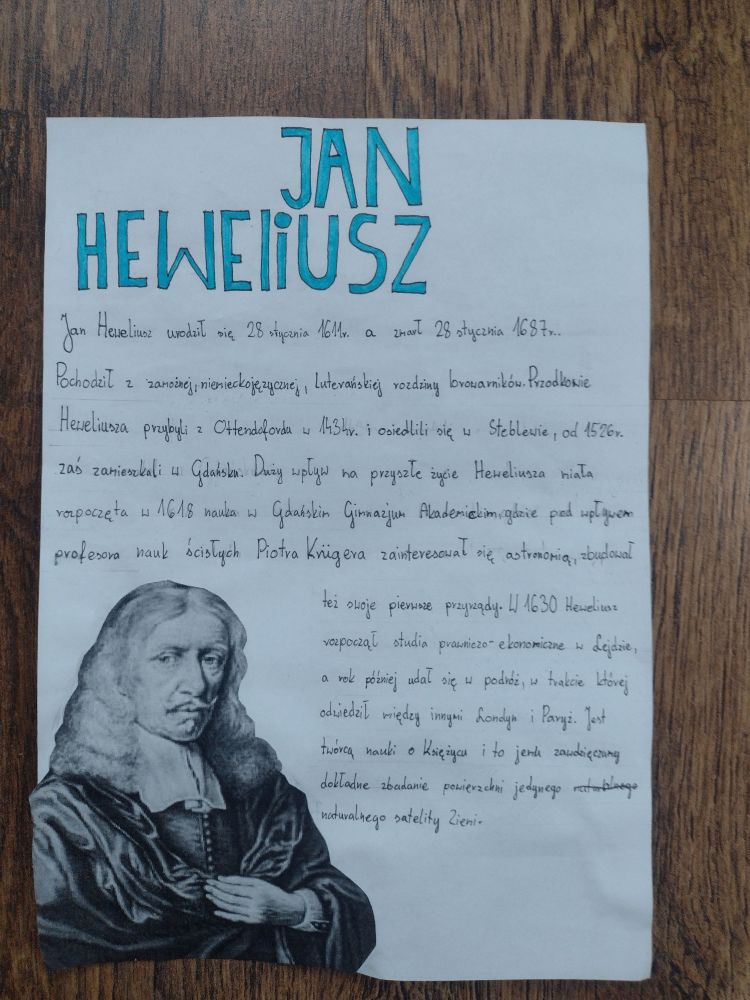 JAN
HEWELIUSZ
Jan Heweliusz urodził się 28 stycznia 1611r. a zmarł 28 stycznia 1687r..
Pochodził z zamożnej, niemieckojęzycznej, luterańskiej rodziny browarników. Przodkowie
Heweliusza przybyli z Ottendofordu w 1434r. i osiedlili się w Steblewie, od 1526r.
zaś zamieszkali w Gdańsku. Duży wpływ na przyszłe życie Heweliusza miała
rozpoczęta w 1618 nauka w Gdańskim Gimnazjum Akademickim, gdzie pod wpływem
profesora nauk ścisłych Piotra Krügera zainteresował się astronomią, zbudował
też swoje pierwsze przyrządy. W 1630 Heweliusz
rozpoczął studia prawniczo-ekonomiczne w Lejdzie,
a rok później udał się w podróż, w trakcie której
odwiedził między innymi Londyn i Paryż. Jest
twórcą nauki o Księżycu i to jemu zawdzięczamy
dokładne zbadanie powierzchni jedynego
naturalnego satelity Ziemi.